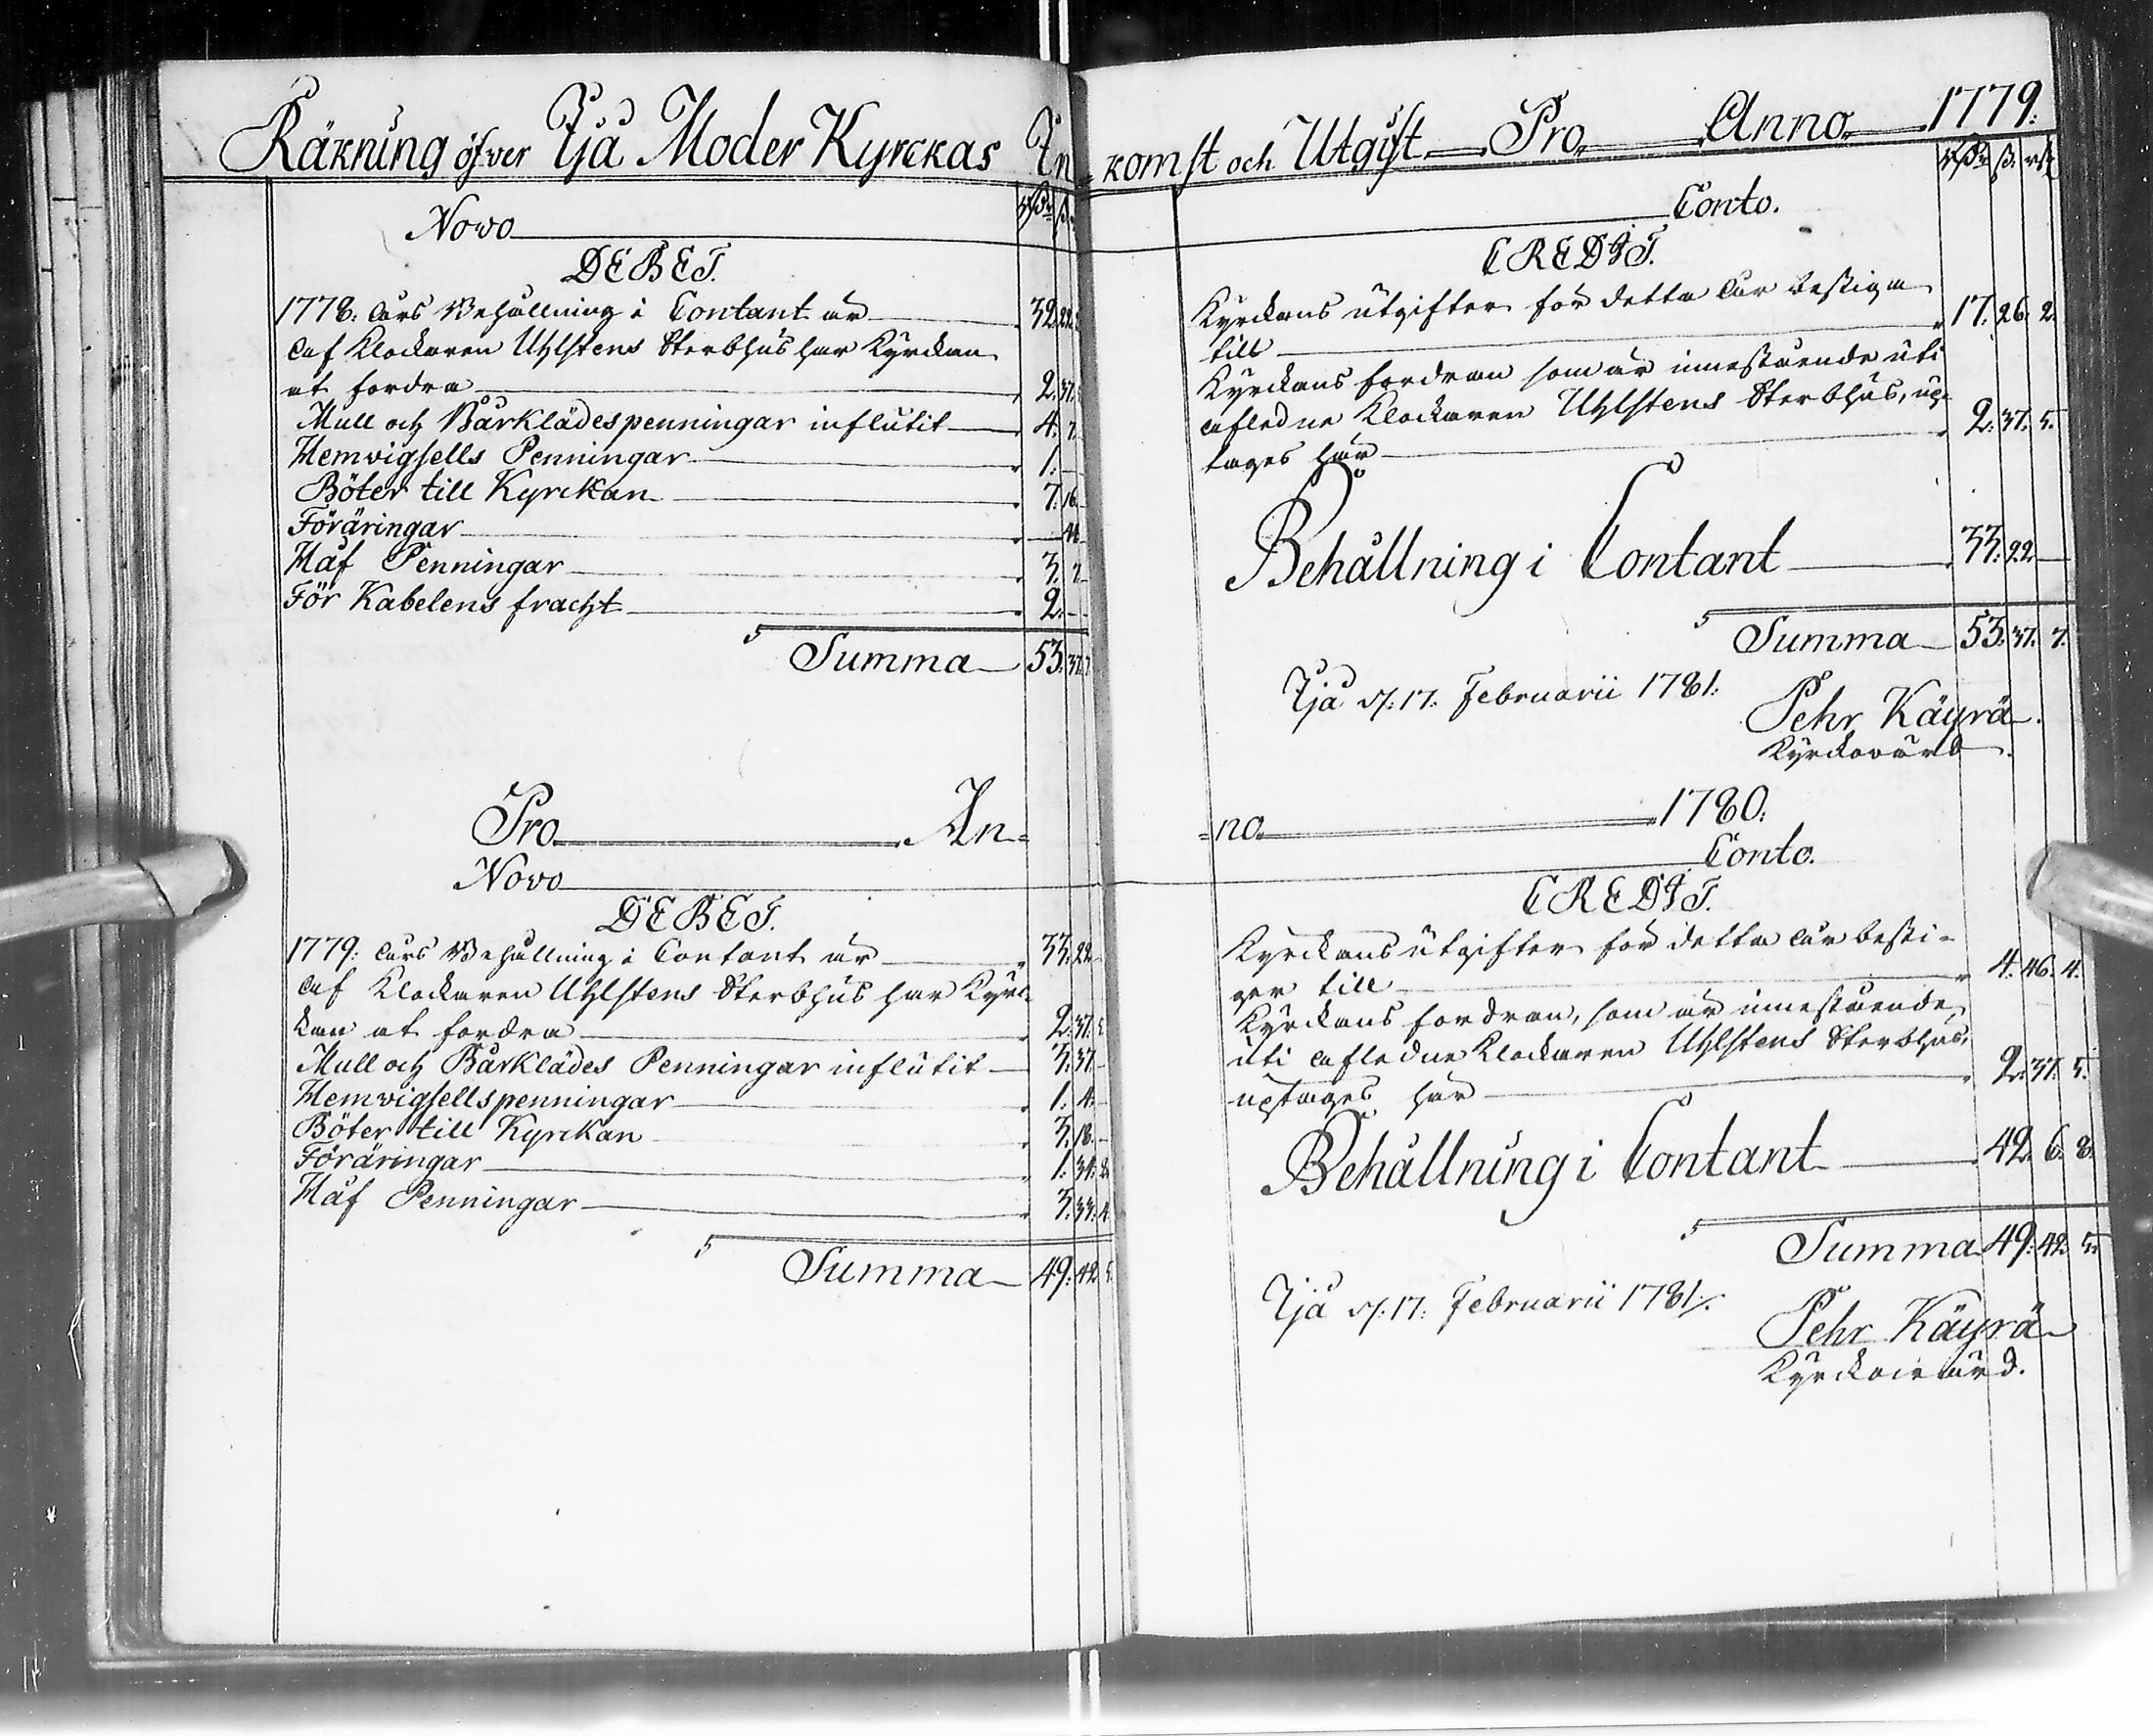 Räkning öfver Ijå Moder Kyrckas In-
Novo
DEBET.
1778. Års Behållning i Contant är 32. 22.
Af Klockaren Uhlstens Sterbhus har Kyrckan
at fordra 2. 37.
Mull och Bårklädespenningar influtit 4. 7.
Hemvigsells Penningar 1. —
Böter till Kyrckan 7. 16.
Föräringar — 44.
Håf Penningar 3. 7.
För Kabelens fracht 2. —
Summa 53. 37. 7.
Pro An-
Novo
DEBET.
1779. Års Behållning i Contant är 33. 22.
Af Klockaren Uhlstens Sterbhus har Kyrc-
kan at fordra 2. 37. 5.
Mull och Bårklädes Penningar influtit 3. 37. —
Hemvigsellspenningar 1. 4. —
Böter till Kyrckan 3. 18. —
Föräringar 1. 34. 8.
Håf Penningar 3. 33. 4.
Summa 49. 42. 5.
komst och Utgift Pro Anno 1779.
Conto.
CREDIT.
Kyrckans utgifter för detta År bestiga
till 17. 26. 2.
Kyrckans fordran som är innestående uti
aflednе Klockaren Uhlstens Sterbhus, up-
tages här 2. 37. 5.
Behållning i Contant 33. 22. —
Summa 53. 37. 7.
Ijå d. 17. Februarii 1781.
Pehr Käyrä.
Kyrckovärd.
=no 1780.
Conto.
CREDIT.
Kyrckans utgifter för detta År besti-
ger till 4. 46. 4.
Kyrckans fordran, som är innestående
uti aflednе Klockaren Uhlstens Sterbhus,
uptages här 2. 37. 5.
Behållning i Contant 42. 6. 8.
Summa 49. 42. 5.
Ijå d. 17. Februarii 1781.
Pehr Käyrä
Kyrckovärd.